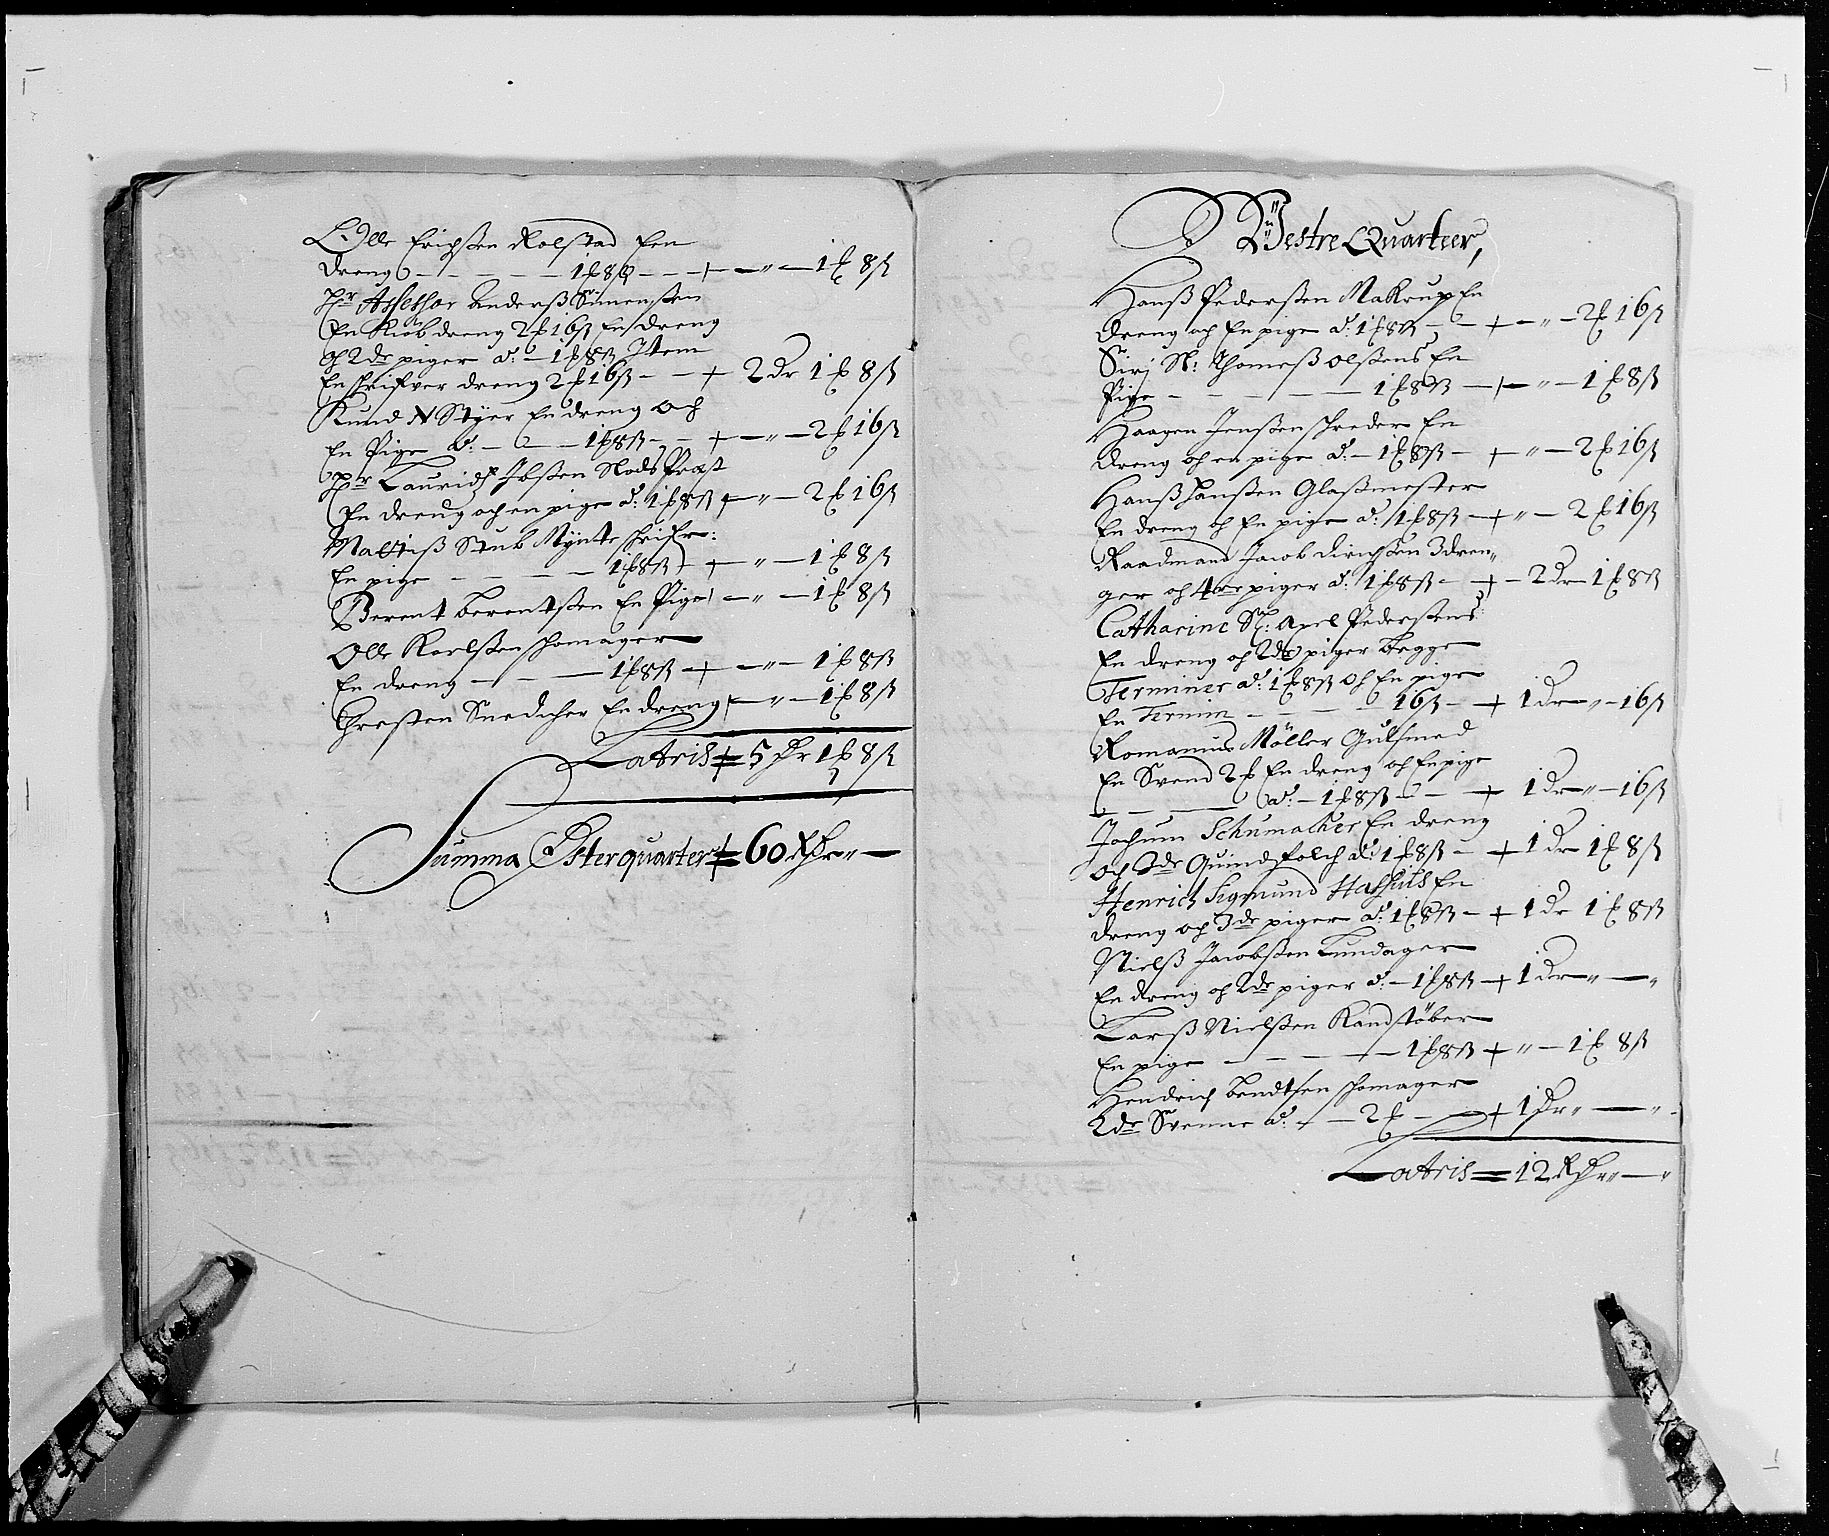 Olle Erichßen Rolstad Een
dreng — — — — 1 ℔ 8 ß — — + — „ — 1 ℔ 8 ß
Hr Assessor Anderß Simensßen
En Kiøb dreng 2 ℔ 16 ß En dreng
och 2de piger a: — 1 ℔ 8 ß Item
En schrifver dreng 2 ℔ 16 ß — — + 2 Dr 1 ℔ 8 ß
Knud N Styer En dreng och
En Pige a: — — — 1 ℔ 8 ß — — + — „ — 2 ℔ 16 ß
Hr Lauridß Ibßen Slods Præst
En dreng och en pige a: 1 ℔ 8 ß + „ — 2 ℔ 16 ß
Mattiß Stub Mynte schrifr:
En pige — — — — 1 ℔ 8 ß + — „ — 1 ℔ 8 ß
Berent berentßen En Pige — „ — 1 ℔ 8 ß
Olle Karlßen schomager
En dreng — — — 1 ℔ 8 ß + — „ — 1 ℔ 8 ß
Chresten Snedicher En dreng + — „ — 1 ℔ 8 ß
Latris = 5 Dr 1 ℔ 8 ß
Summa Østerquarter = 60 Rdr „ —
Westre Quarteer,
Hanß Pederßen Makrup En
dreng och En pige a: 1 ℔ 8 ß — — + — „ — 2 ℔ 16 ß
Siri Sl: Thomeß olßens En
Pige — — — — — 1 ℔ 8 ß — + — „ — 1 ℔ 8 ß
Haagen Jenßen schreder En
dreng och en pige a: — 1 ℔ 8 ß — + „ — 2 ℔ 16 ß
Hanß Hanßen Glaßmester
En dreng och En pige a: 1 ℔ 8 ß — + „ — 2 ℔ 16 ß
Raadmand Jacob dirichßen 3 dren„
ger och 4re piger a: 1 ℔ 8 ß — + — 2 Dr 1 ℔ 8 ß
Catharine Sl: Axel Pederßens:
En dreng och 2de piger begge
Terminer a: 1 ℔ 8 ß och En pige
En Termin — — — — 16 ß — + 1 Dr „ — 16 ß
Romanus Møller Gulsmed
En Svend 2 ℔ En dreng och En pige
— — — a: — 1 ℔ 8 ß — — + 1 Dr „ — 16 ß
Jochum Schumacher En dreng
och 3de Quindfolch a: 1 ℔ 8 ß — + 1 Dr 1 ℔ 8 ß
Henrich Sigmund Hassius En
dreng och 3de piger a: 1 ℔ 8 ß — + 1 Dr 1 ℔ 8 ß
Nielß Jacobßen Lundager
En dreng och 2de piger a: — 1 ℔ 8 ß + 1 Dr „ — „
Larß Nielßen Kandstøber
En pige — — — — — 1 ℔ 8 ß + „ — 1 ℔ 8 ß
Hendrich bendtsen schomager
2de Svenne a: — — 2 ℔ — — + 1 Dr „ — „
Latris = 12 Rdr „ — „